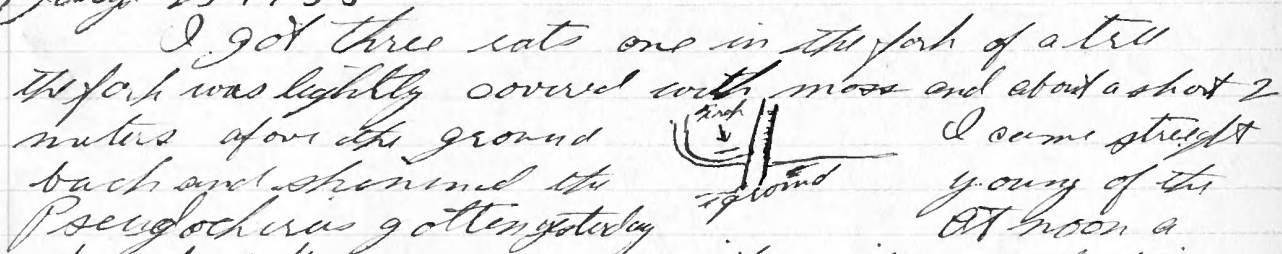 I got three rats one in the fork of a tree
the fork was lightly covered with moss and about a short 2
meters afove the ground I came streight
back and skinned the young of the
ground
Pseudochirus gotten yesterday At noon a